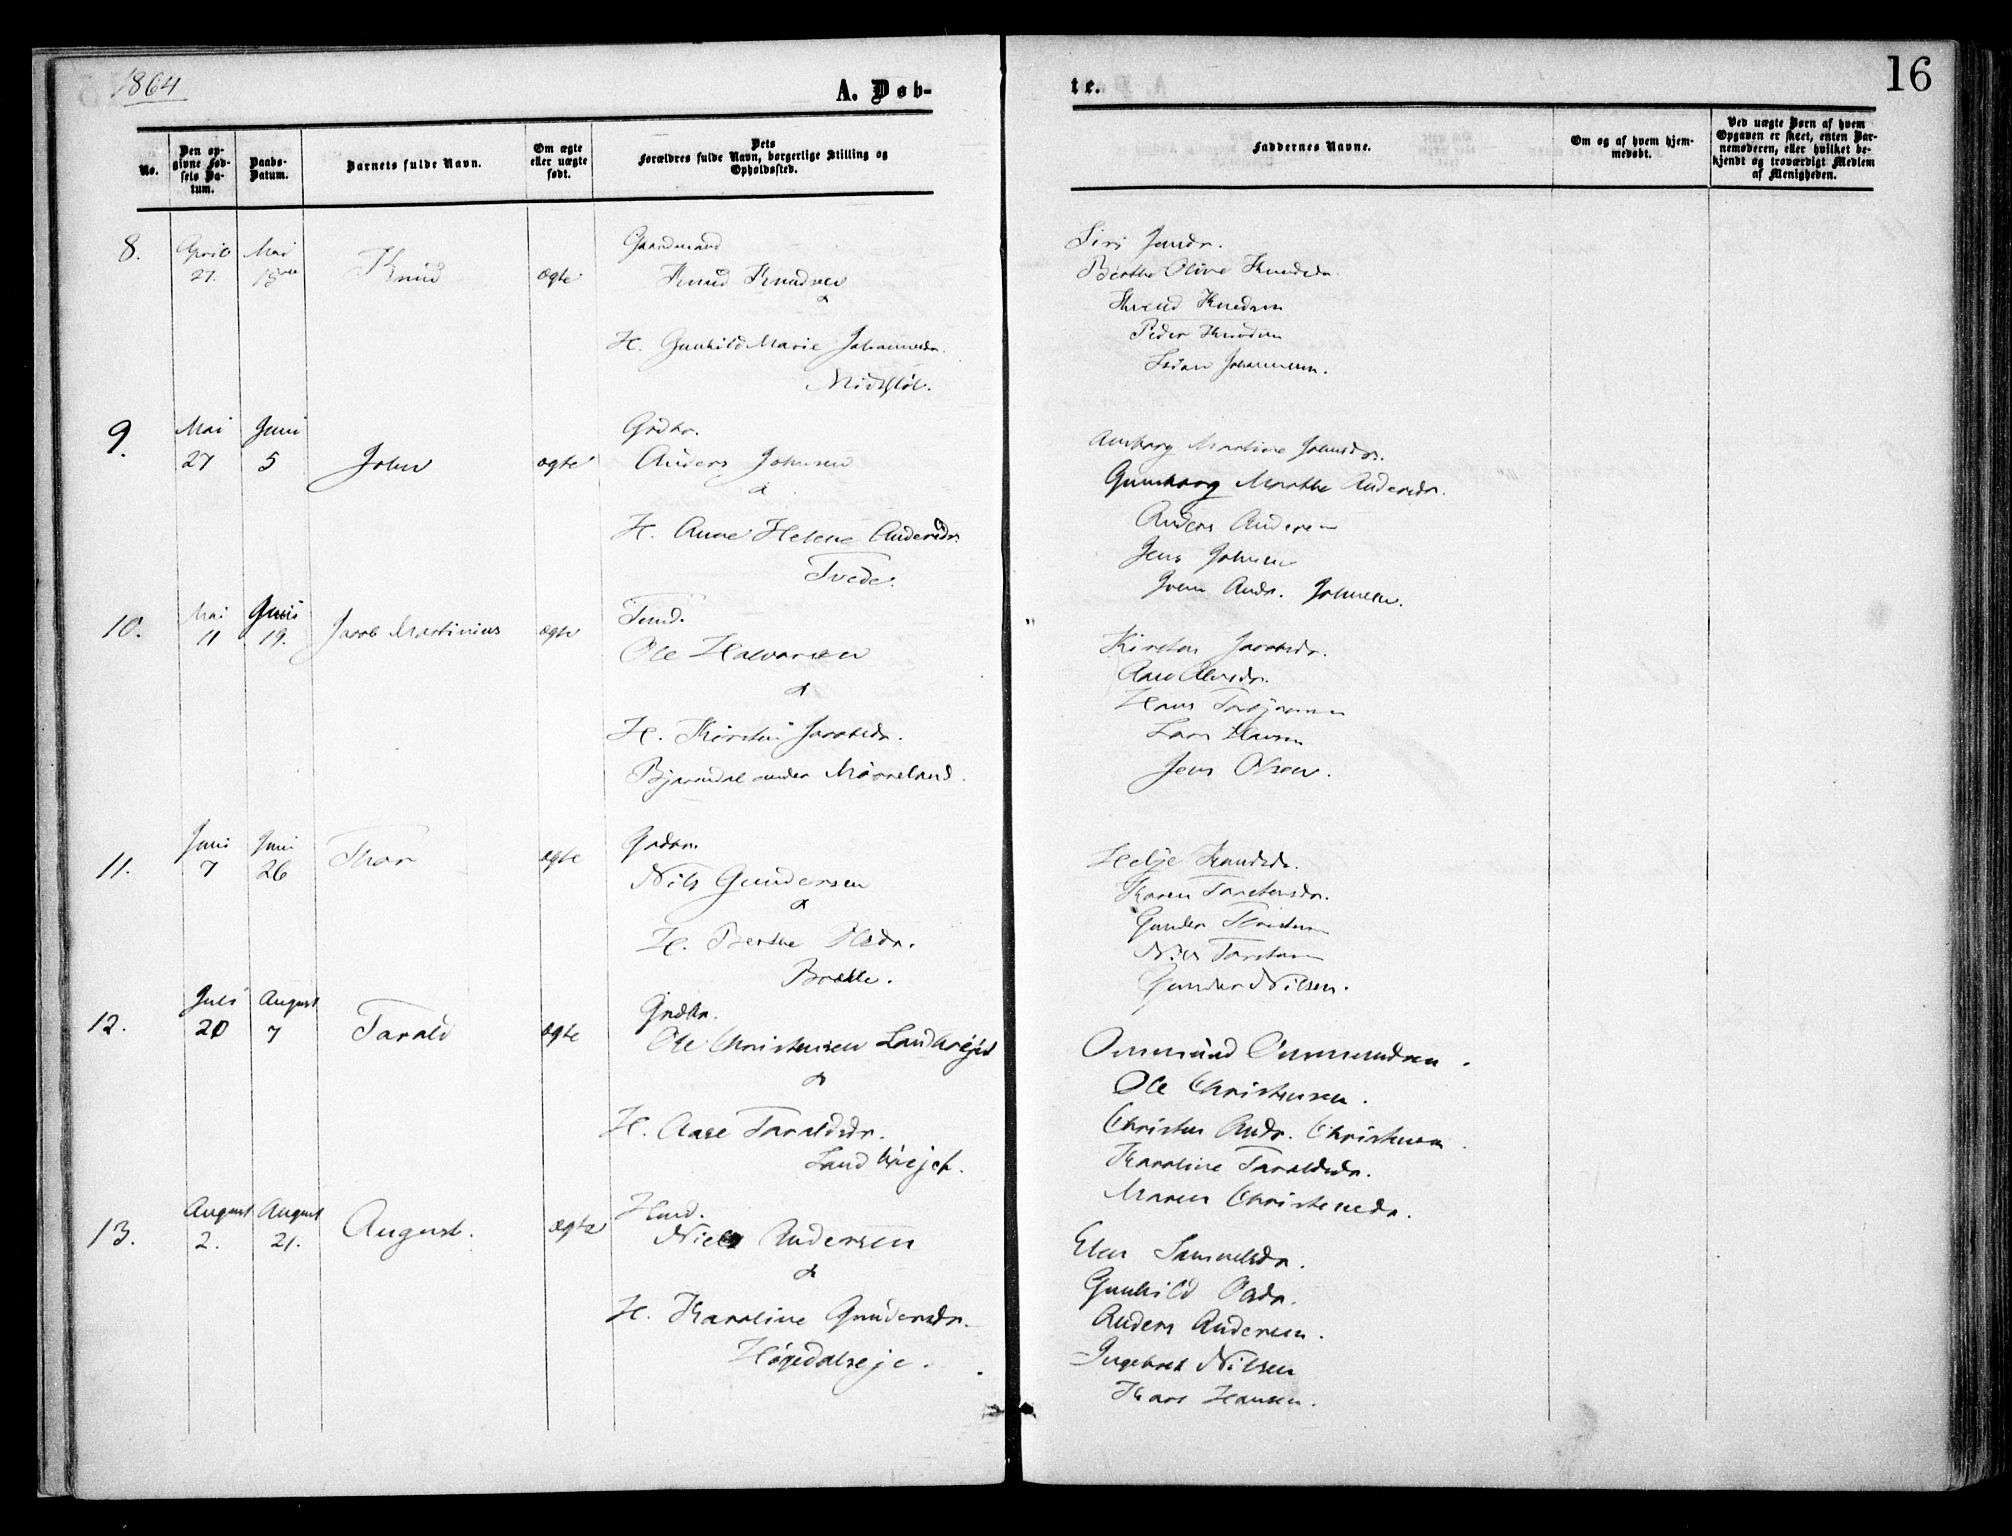 1864
A. Døb-
No.
Den opgivne Fødsels Datum.
Daabs-Datum.
Barnets fulde Navn.
Om ægte eller uægte født.
Dets Forældres fulde Navn, borgerlige Stilling og Opholdssted.
8.
April 27.
Mai 15
Knud
ægte
Gaardmand
Knud Knudsen
&
H. Gunhild Marie Johannesdr.
9.
Mai 27
Juni 5
John
ægte
Grdbr.
Anders Johnsen
&
H. Anne Helene Andersdr.
Tvede.
10.
Mai 11
Juni 19.
Jacob Martinius
ægte
Ole Halvorsen
&
H. Kirsten Jacobsdr.
Bjorndal under Mørreland.
11.
Juni 7
Juni 26
Thor
ægte
Grdbr.
Nils Gundersen
&
H. Berthe Olsdr.
12.
Juli 20
August 7
Tarald
ægte
Grdbr.
Ole Christensen Landbøejet
&
H. Aase Taraldsdr.
Landbøejet.
13.
August 2.
August 21.
August.
ægte
Husd.
Niels Andersen
&
H. Karoline Gundersdr.
te.
16
Faddernes Navne.
Om og af hvem hjemmedøbt.
Ved uægte Børn af hvem Opgaven er skeet, enten Barnemoderen, eller hvilket bekjendt og troværdigt Medlem af Menigheden.
Siri Jensdr.
Berthe Oline Knudsdr.
Knudsen
Peder Knudsen
Johannesen.
Martine Johnsdr.
Gunborg Marthe Andersdr.
Anders Andersen
Jens Johnsen
Andr. Johnsen.
Kirsten Jacobsdr.
Olevsdr.
Hans Torbjørnsen
Lars Hansen
Jens Olsen.
Helje Knudsdr.
Karen Tarstensdr.
Gunder
Nils Tarstensen
Gunder Nilsen.
Ommund Ommundsen.
Ole Christensen.
Christen Andr. Christensen.
Karoline Taraldsdr.
Maren Christensdr.
Elen Samuelsdr.
Gunhild Olsdr.
Anders Andersen.
Ingebret Nilsen
Karl Hansen.